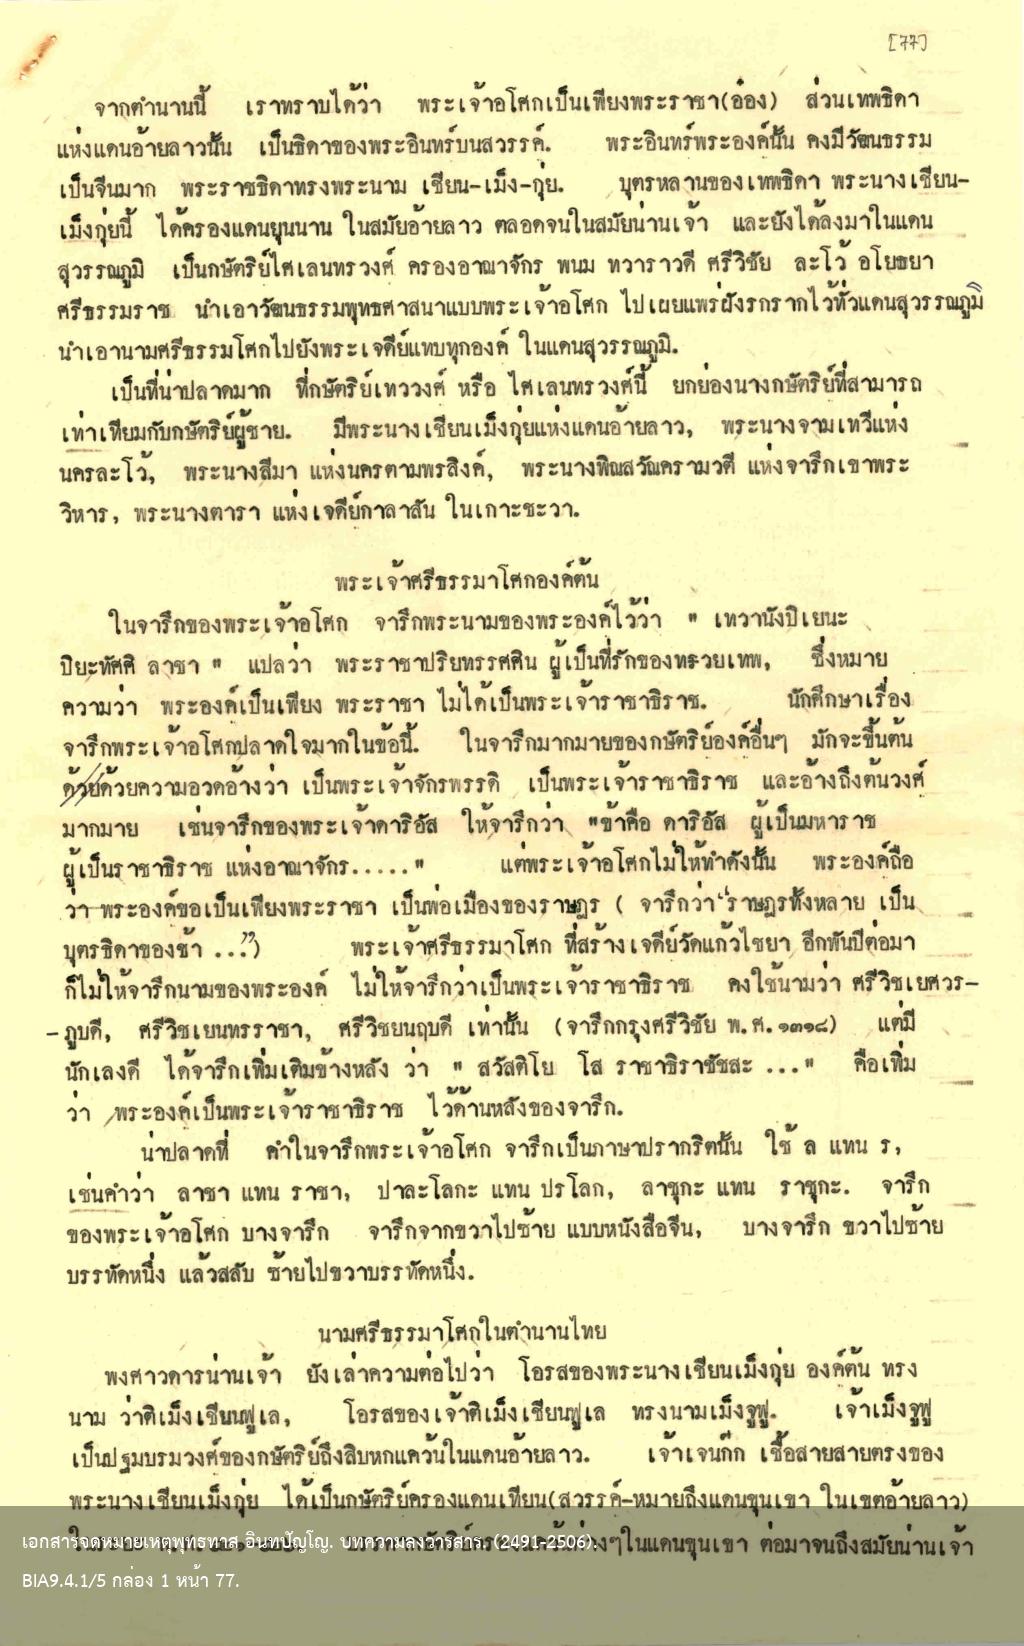 [77]
จากตำนานนี้ เราทราบได้ว่า พระเจ้าอโศกเป็นเพียงพระราชา(อ๋อง) ส่วนเทพธิดา
แห่งแดนอ้ายลาวนั้น เป็นธิดาของพระอินทร์บนสวรรค์. พระอินทร์พระองค์นั้น คงมีวัฒนธรรม
เป็นจีนมาก พระราชธิดาทรงพระนาม เชียน-เม็ง-กุ่ย. บุตรหลานของเทพธิดา พระนางเชียน-
เม็งกุ่ยนี้ ได้ครองแดนยุนนาน ในสมัยอ้ายลาว ตลอดจนในสมัยน่านเจ้า และยังได้ลงมาในแดน
สุวรรณภูมิ เป็นกษัตริย์ไศเลนทรวงศ์ ครองอาณาจักร พนม ทวาราวดี ศรีวิชัย ละโว้ อโยธยา
ศรีธรรมราช นำเอาวัฒนธรรมพุทธศาสนาแบบพระเจ้าอโศก ไปเผยแพร่ฝังรกรากไว้ทั่วแดนสุวรรณภูมิ
นำเอานามศรีธรรมโศกไปยังพระเจดีย์แทบทุกองค์ ในแดนสุวรรณภูมิ.
เป็นที่น่าปลาดมาก ที่กษัตริย์เทววงศ์ หรือ ไศเลนทรวงศ์นี้ ยกย่องนางกษัตริย์ที่สามารถ
เท่าเทียมกับกษัตริย์ผู้ชาย. มีพระนางเชียนเม็งกุ่ยแห่งแดนอ้ายลาว, พระนางจามเทวีแห่ง
นครละโว้, พระนางสีมา แห่งนครตามพรลิงค์, พระนางพิณสวัณครามวตี แห่งจารึกเขาพระ
วิหาร, พระนางตารา แห่งเจดีย์กาลาสัน ในเกาะชะวา.
พระเจ้าศรีธรรมาโศกองค์ต้น
ในจารึกของพระเจ้าอโศก จารึกพระนามของพระองค์ไว้ว่า " เทวานังปิเยนะ
ปิยะทัศศิ ลาชา " แปลว่า พระราชาปริยทรรศศิน ผู้เป็นที่รักของทรวยเทพ, ซึ่งหมาย
ความว่า พระองค์เป็นเพียง พระราชา ไม่ได้เป็นพระเจ้าราชาธิราช. นักศึกษาเรื่อง
จารึกพระเจ้าอโศกปลาดใจมากในข้อนี้. ในจารึกมากมายของกษัตริย์องค์อื่นๆ มักจะขึ้นต้น
ด้วยด้วยความอวดอ้างว่า เป็นพระเจ้าจักรพรรดิ เป็นพระเจ้าราชาธิราช และอ้างถึงต้นวงศ์
มากมาย เช่นจารึกของพระเจ้าดาริอัส ให้จารึกว่า "ข้าคือ ดาริอัส ผู้เป็นมหาราช
ผู้เป็นราชาธิราช แห่งอาณาจักร....." แต่พระเจ้าอโศกไม่ให้ทำดังนั้น พระองค์ถือ
ว่า พระองค์ขอเป็นเพียงพระราชา เป็นพ่อเมืองของราษฎร ( จารึกว่า "ราษฎรทั้งหลาย เป็น
บุตรธิดาของข้า ...") พระเจ้าศรีธรรมาโศก ที่สร้างเจดีย์วัดแก้วไชยา อีกพันปีต่อมา
ก็ไม่ให้จารึกนามของพระองค์ ไม่ให้จารึกว่าเป็นพระเจ้าราชาธิราช คงใช้นามว่า ศรีวิชเยศวร-
-ภูบดี, ศรีวิชเยนทรราชา, ศรีวิชยนฤบดี เท่านั้น (จารึกกรุงศรีวิชัย พ.ศ.๑๓๑๘) แต่มี
นักเลงดี ได้จารึกเพิ่มเติมข้างหลัง ว่า " สวัสติโย โส ราชาธิราชัชสะ ..." คือเพิ่ม
ว่า พระองค์เป็นพระเจ้าราชาธิราช ไว้ด้านหลังของจารึก.
น่าปลาดที่ คำในจารึกพระเจ้าอโศก จารึกเป็นภาษาปรากริตนั้น ใช้ ล แทน ร,
เช่นคำว่า ลาชา แทน ราชา, ปาละโลกะ แทน ปรโลก, ลาชุกะ แทน ราชุกะ. จารึก
ของพระเจ้าอโศก บางจารึก จารึกจากขวาไปซ้าย แบบหนังสือจีน, บางจารึก ขวาไปซ้าย
บรรทัดหนึ่ง แล้วสลับ ซ้ายไปขวาบรรทัดหนึ่ง.
นามศรีธรรมาโศกในตำนานไทย
พงศาวดารน่านเจ้า ยังเล่าความต่อไปว่า โอรสของพระนางเชียนเม็งกุ่ย องค์ต้น ทรง
นาม ว่าติเม็งเชียนฟูเล, โอรสของเจ้าติเม็งเชียนฟูเล ทรงนามเม็งจูฟู. เจ้าเม็งจูฟู
เป็นปฐมบรมวงศ์ของกษัตริย์ถึงสิบหกแคว้นในแดนอ้ายลาว. เจ้าเจนก๊ก เชื้อสายสายตรงของ
พระนางเชียนเม็งกุ่ย ได้เป็นกษัตริย์ครองแดนเทียน(สวรรค์-หมายถึงแดนขุนเขา ในเขตอ้ายลาว)
ต่างๆในแดนขุนเขา ต่อมาจนถึงสมัยน่านเจ้า
เอกสารจดหมายเหตุพุทธทาส อินทปัญโญ. บทความลงวารสาร. (2491-2506).
BIA9.4.1/5 กล่อง 1 หน้า 77.